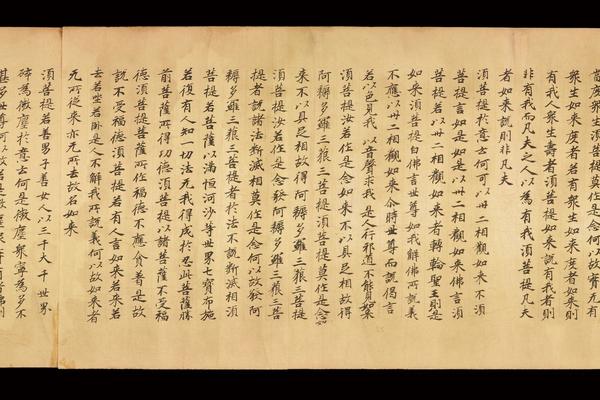 衆生如来度者若有衆生如来度者如来則
有我人衆生壽者須菩提如来說有我者則
非有我而凡夫之人以為有我須菩提凡夫
者如来說則非凡夫
須菩提於意云何可以卅二相觀如来不須
菩提言如是如是以卅二相觀如来佛言須
菩提若以卅二相觀如来者轉輪聖王則是
如来須菩提白佛言世尊如我解佛所說義
不應以卅二相觀如来尒時世尊而說偈言
若以色見我 以音聲求我 是人行邪道 不能見如来
須菩提汝若作是念如来不以具足相故得
阿耨多羅三藐三菩提須菩提莫作是念如
来不以具足相故得阿耨多羅三藐三菩提
須菩提汝若作是念發阿耨多羅三藐三菩
提者說諸法断滅相莫作是念何以故發阿
耨多羅三藐三菩提者於法不說断滅相須
菩提若菩薩以滿恒河沙等世界七寶布施
若復有人知一切法无我得成於忍此菩薩勝
前菩薩所得功德須菩提以諸菩薩不受福
德須菩提菩薩所作福德不應貪著是故
說不受福德須菩提若有人言如来若来若
去若坐若卧是人不解我所說義何以故如来者
无所從来亦无所去故名如来
須菩提若善男子善女人以三千大千世界
碎為微塵於意云何是微塵衆寧為多不